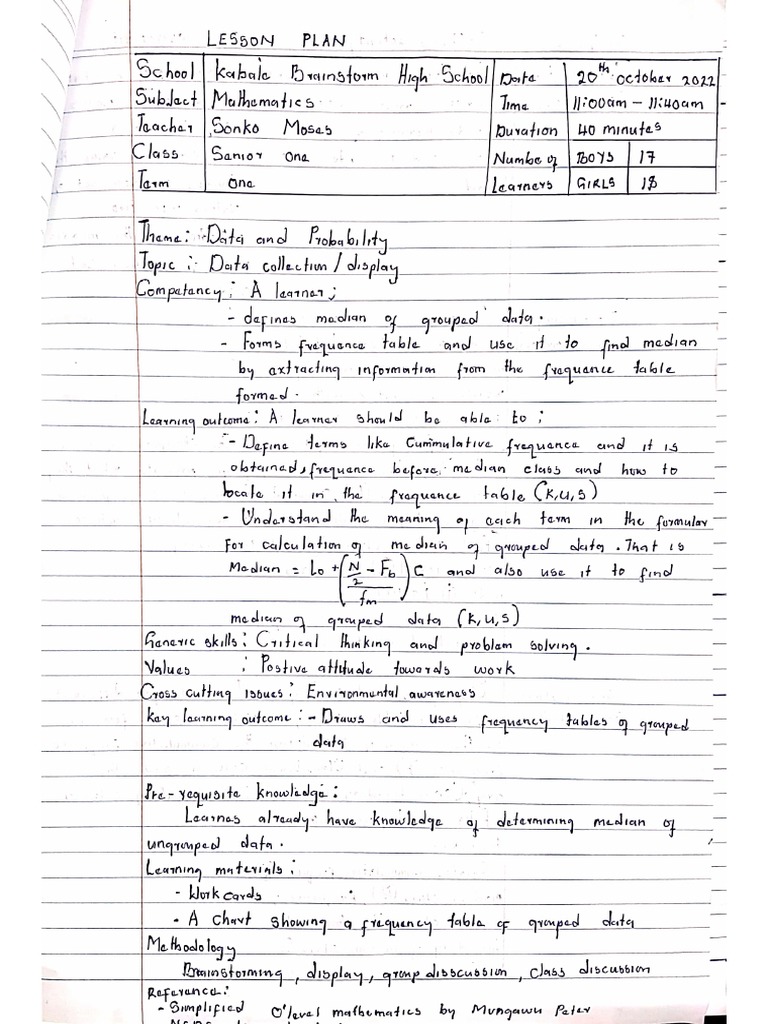 LESSON PLAN
School Kabale Brainstorm High School Date 20th October 2022
Subject Mathematics Time 11:00am – 11:40am
Teacher Sonko Moses Duration 40 minutes
Class Senior One Number of BOYS 17
Term One Learners GIRLS 18
Theme: Data and Probability
Topic : Data collection / display
Competency : A learner;
- defines median of grouped data.
- Forms frequence table and use it to find median
by extracting information from the frequence table
formed.
Learning outcome : A learner should be able to ;
- Define terms like Cummulative frequence and it is
obtained, frequence before median class and how to
locate it in the frequence table (k,u,s)
- Understand the meaning of each term in the formular
for calculation of median of grouped data. That is
Median = Lo + (N/2 - Fb / fm) C and also use it to find
median of grouped data (k,u,s)
Generic skills : Critical thinking and problem solving.
Values : Postive attitude towards work
Cross cutting issues : Environmental awareness
Key learning outcome : - Draws and uses frequency tables of grouped
data
Pre-requisite knowledge :
Learnes already have knowledge of determining median of
ungrouped data.
Learning materials :
- Work cards
- A chart showing a frequency table of grouped data
Methodology
Brainstorming , display , group disscussion , class discussion
Reference :
- Simplified O'level mathematics by Mungawu Peter